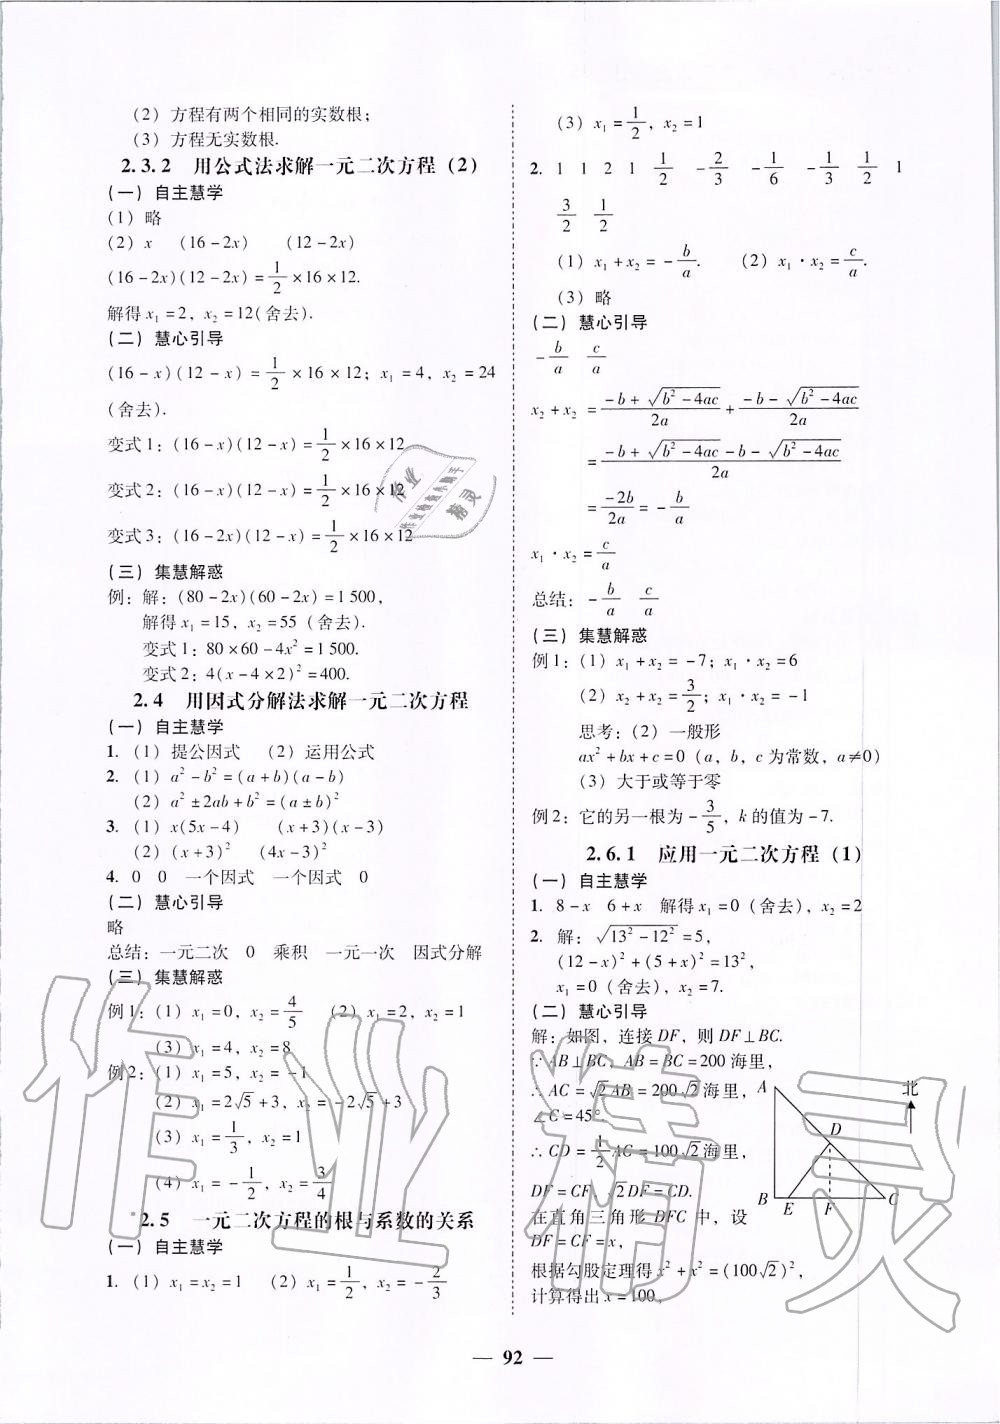 (2) 方程有两个相同的实数根;
(3) 方程无实数根.
2.3.2 用公式法求解一元二次方程(2)
(一) 自主慧学
(1) 略
(2) x (16-2x) (12-2x)
(16-2x)(12-2x)=1/2×16×12.
解得x₁=2, x₂=12(舍去).
(二) 慧心引导
(16-x)(12-x)=1/2×16×12; x₁=4, x₂=24
(舍去).
变式1: (16-x)(12-x)=1/2×16×12
变式2: (16-2x)(12-x)=1/2×16×12
变式3: (16-2x)(12-x)=1/2×16×12
(三) 集慧解惑
例: 解: (80-2x)(60-2x)=1 500,
解得x₁=15, x₂=55 (舍去).
变式1: 80×60-4x²=1 500.
变式2: 4(x-4×2)²=400.
2.4 用因式分解法求解一元二次方程
(一) 自主慧学
1. (1) 提公因式 (2) 运用公式
2. (1) a²-b²=(a+b)(a-b)
(2) a²±2ab+b²=(a±b)²
3. (1) x(5x-4) (x+3)(x-3)
(2) (x+3)² (4x-3)²
4. 0 0 一个因式 一个因式 0
(二) 慧心引导
略
总结: 一元二次 0 乘积 一元一次 因式分解
(三) 集慧解惑
例1: (1) x₁=0, x₂=4/5 (2) x₁=2, x₂=1
(3) x₁=4, x₂=8
例2: (1) x₁=5, x₂=-1
(2) x₁=2√5+3, x₂=-2√5+3
(3) x₁=1/3, x₂=1
(4) x₁=-1/2, x₂=3/4
2.5 一元二次方程的根与系数的关系
(一) 自主慧学
1. (1) x₁=x₂=1 (2) x₁=1/2, x₂=-2/3
(3) x₁=1/2, x₂=1
2. 1 1 2 1 1/2 -2/3 -1/6 -1/3 1/2 1
3/2 1/2
(1) x₁+x₂=-b/a. (2) x₁·x₂=c/a.
(3) 略
(二) 慧心引导
-b/a c/a
x₂+x₂=(-b+√(b²-4ac))/2a+(-b-√(b²-4ac))/2a
=(-b+√(b²-4ac)-b-√(b²-4ac))/2a
=-2b/2a=-b/a
x₁·x₂=c/a
总结: -b/a c/a
(三) 集慧解惑
例1: (1) x₁+x₂=-7; x₁·x₂=6
(2) x₂+x₂=3/2; x₁·x₂=-1
思考: (2) 一般形
ax²+bx+c=0 (a, b, c为常数, a≠0)
(3) 大于或等于零
例2: 它的另一根为-3/5, k的值为-7.
2.6.1 应用一元二次方程(1)
(一) 自主慧学
1. 8-x 6+x 解得x₁=0 (舍去), x₂=2
2. 解: √(13²-12²)=5,
(12-x)²+(5+x)²=13²,
x₁=0 (舍去), x₂=7.
(二) 慧心引导
解: 如图, 连接DF, 则DF⊥BC.
∵AB⊥BC, AB=BC=200海里,
∴AC=√2AB=200√2海里,
∠C=45°
∴CD=1/2AC=100√2海里,
DF=CF, √2DF=CD.
在直角三角形DFC中, 设
DF=CF=x,
根据勾股定理得x²+x²=(100√2)²,
计算得出x=100,
A
北
D
B E F C
— 92 —
作业
作业检查小助手
精灵
作业精灵